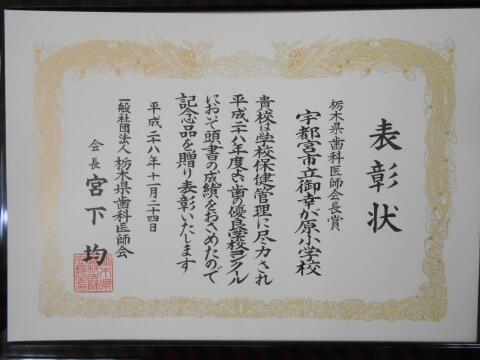 表彰状
栃木県歯科医師会長賞
宇都宮市立御幸が原小学校
貴校は学校保健管理に尽力され
平成二十八年度よい歯の優良学校コンクール
において頭書の成績をおさめたので
記念品を贈り表彰いたします
平成二十八年十一月二十四日
一般社団法人 栃木県歯科医師会
会長 宮下均